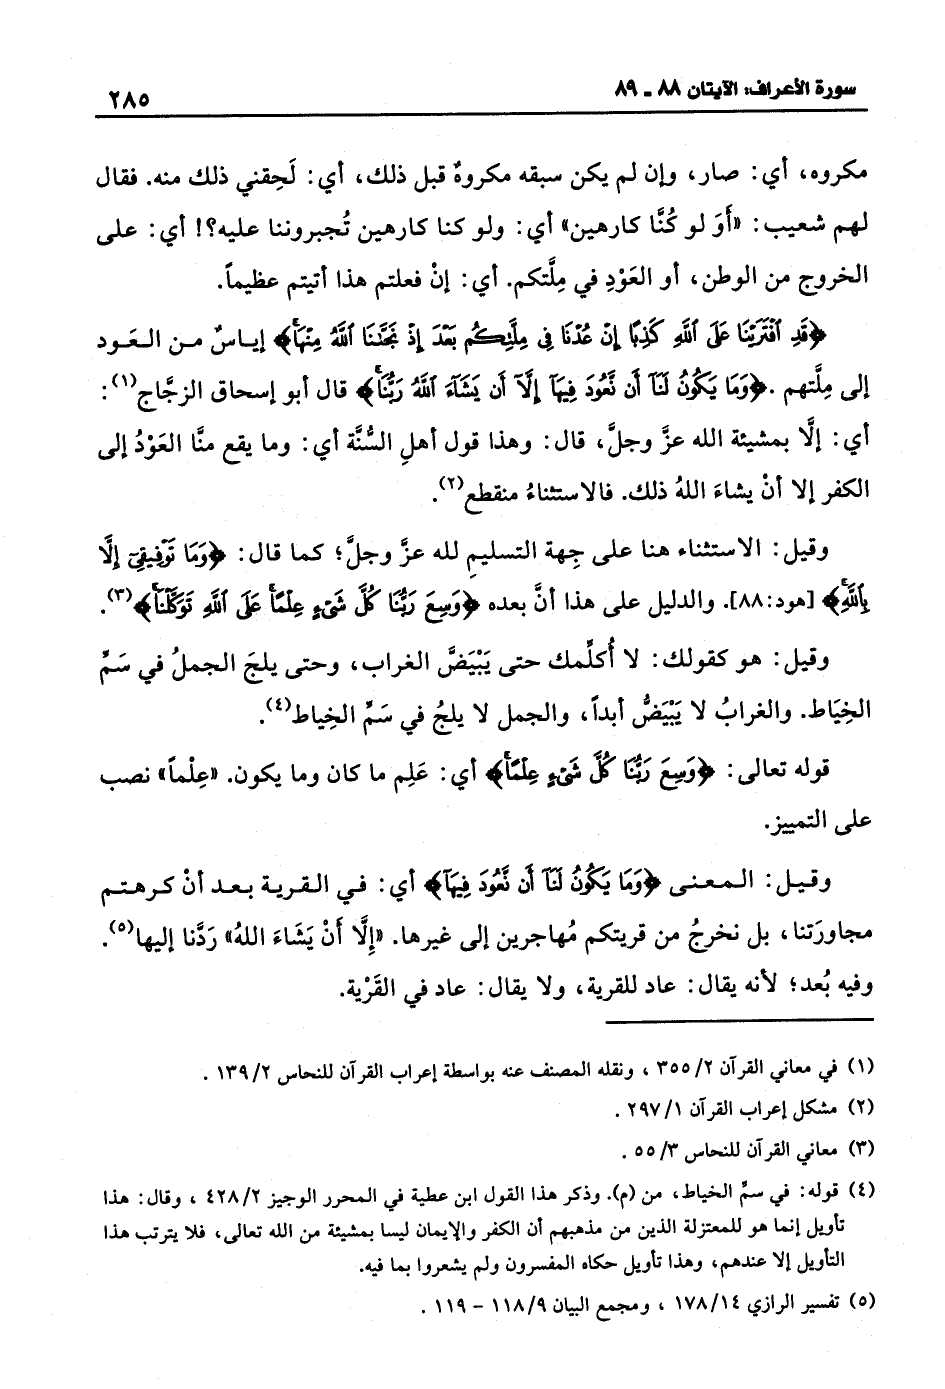 سورة الأعراف: الآيتان ٨٨ ـ ٨٩
٢٨٥
مكروه، أي: صار، وإن لم يكن سبقه مكروهٌ قبل ذلك، أي: لَحِقني ذلك منه. فقال
لهم شعيب: «أَوَ لو كُنَّا كارهين» أي: ولو كنا كارهين تُجبروننا عليه؟! أي: على
الخروج من الوطن، أو العَوْدِ في مِلَّتكم. أي: إنْ فعلتم هذا أتيتم عظيماً.
﴿قَدِ ٱفْتَرَيْنَا عَلَى ٱللَّهِ كَذِبًا إِنْ عُدْنَا فِى مِلَّتِكُم بَعْدَ إِذْ نَجَّىٰنَا ٱللَّهُ مِنْهَاۚ﴾ إياسٌ من العَود
إلى مِلَّتهم. ﴿وَمَا يَكُونُ لَنَآ أَن نَّعُودَ فِيهَآ إِلَّآ أَن يَشَآءَ ٱللَّهُ رَبُّنَاۚ﴾ قال أبو إسحاق الزجَّاج(١):
أي: إلَّا بمشيئة الله عزَّ وجلَّ، قال: وهذا قول أهلِ السُّنَّة أي: وما يقع منَّا العَوْدُ إلى
الكفر إلا أنْ يشاءَ اللهُ ذلك. فالاستثناءُ منقطع(٢).
وقيل: الاستثناء هنا على جِهة التسليمِ لله عزَّ وجلَّ؛ كما قال: ﴿وَمَا تَوْفِيقِىٓ إِلَّا
بِٱللَّهِۚ﴾ [هود:٨٨]. والدليل على هذا أنَّ بعده ﴿وَسِعَ رَبُّنَا كُلَّ شَىْءٍ عِلْمًاۚ عَلَى ٱللَّهِ تَوَكَّلْنَاۚ﴾(٣).
وقيل: هو كقولك: لا أُكلِّمك حتى يَبْيَضَّ الغراب، وحتى يلجَ الجملُ في سَمِّ
الخِيَاط. والغرابُ لا يَبْيَضُّ أبداً، والجمل لا يلجُ في سَمِّ الخِياط(٤).
قوله تعالى: ﴿وَسِعَ رَبُّنَا كُلَّ شَىْءٍ عِلْمًاۚ﴾ أي: عَلِم ما كان وما يكون. «عِلْماً» نصب
على التمييز.
وقيل: المعنى ﴿وَمَا يَكُونُ لَنَآ أَن نَّعُودَ فِيهَآ﴾ أي: في القرية بعد أنْ كرهتم
مجاورَتنا، بل نخرجُ من قريتكم مُهاجرين إلى غيرها. «إِلَّا أَنْ يَشَاءَ اللهُ» رَدَّنا إليها(٥).
وفيه بُعد؛ لأنه يقال: عاد للقرية، ولا يقال: عاد في القَرْية.
(١) في معاني القرآن ٢/ ٣٥٥ ، ونقله المصنف عنه بواسطة إعراب القرآن للنحاس ٢/ ١٣٩ .
(٢) مشكل إعراب القرآن ١/ ٢٩٧ .
(٣) معاني القرآن للنحاس ٣/ ٥٥ .
(٤) قوله: في سمِّ الخياط، من (م). وذكر هذا القول ابن عطية في المحرر الوجيز ٢/ ٤٢٨ ، وقال: هذا
تأويل إنما هو للمعتزلة الذين من مذهبهم أن الكفر والإيمان ليسا بمشيئة من الله تعالى، فلا يترتب هذا
التأويل إلا عندهم، وهذا تأويل حكاه المفسرون ولم يشعروا بما فيه.
(٥) تفسير الرازي ١٤/ ١٧٨ ، ومجمع البيان ٩/ ١١٨ - ١١٩ .